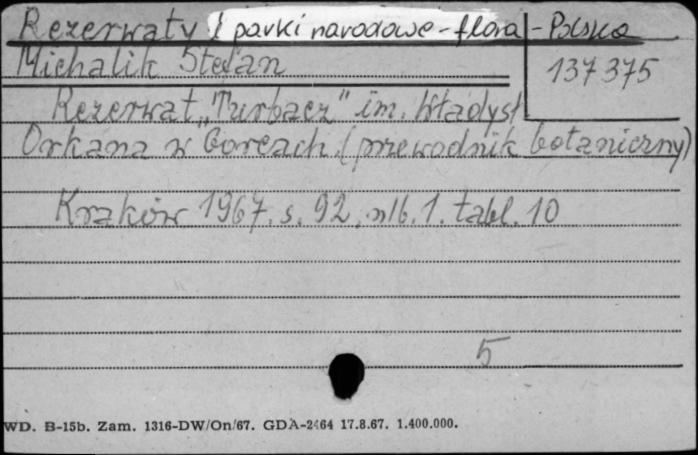 Rezerwaty i parki narodowe - flora - Polska
Michalik Stefan
137375
Rezerwat „Turbacz" im. Władysł.
Orkana w Gorcach (przewodnik botaniczny)
Kraków 1967. s. 92, nlb. 1. tabl. 10
5
WD. B-15b. Zam. 1316-DW/On/67. GDA-2464 17.8.67. 1.400.000.